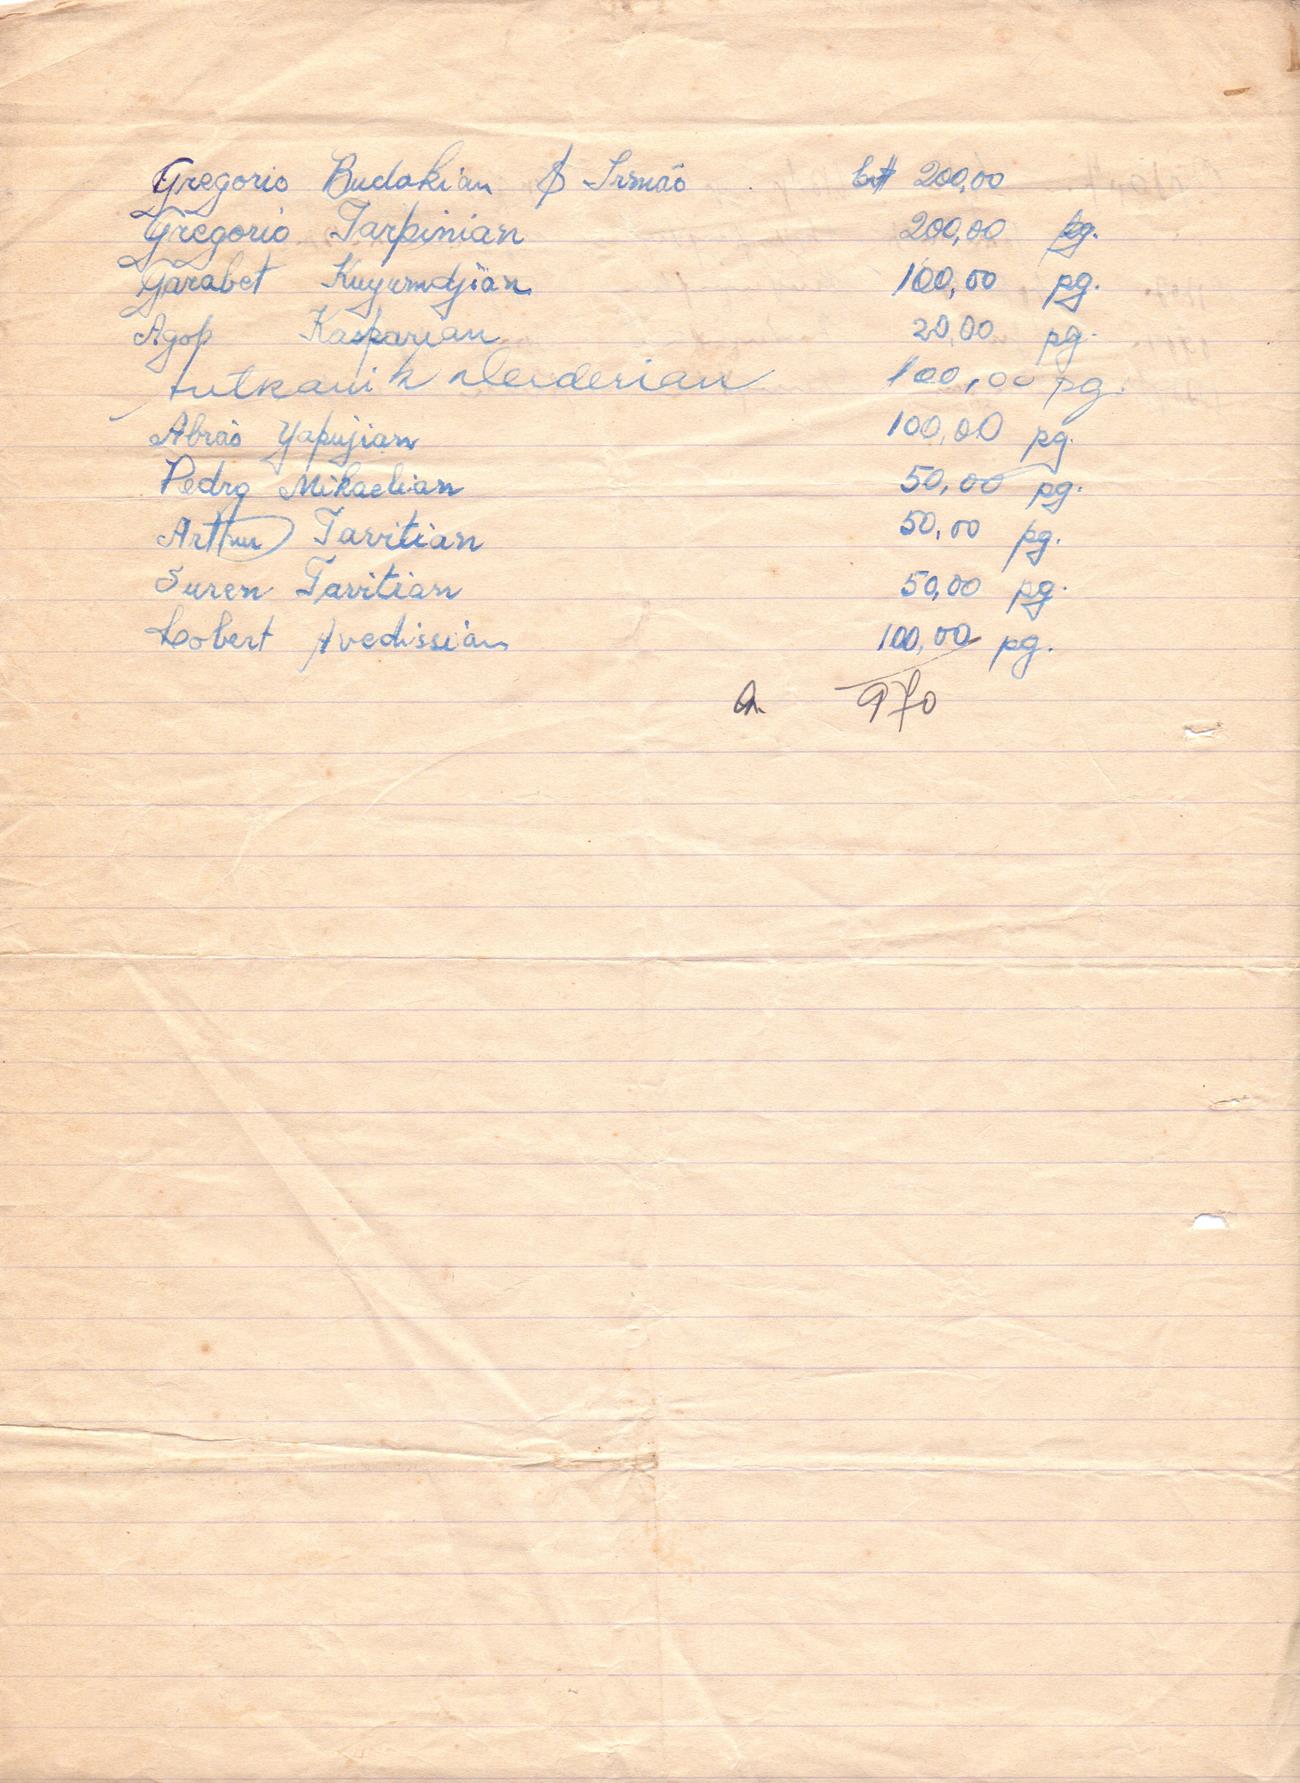 Gregorio Budakian & Irmão Cr$ 200,00
Gregorio Tarpinian 200,00 pg.
Garabet Kuyumdjian 100,00 pg.
Agop Kasparian 20,00 pg.
Derderian 100,00 pg.
Abrão Yapujian 100,00 pg.
Pedro Mikaelian 50,00 pg.
Arthur Tavitian 50,00 pg.
Suren Tavitian 50,00 pg.
Robert Avedissian 100,00 pg.
970